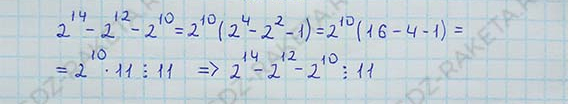 2¹⁴ - 2¹² - 2¹⁰ = 2¹⁰ (2⁴ - 2² - 1) = 2¹⁰ (16 - 4 - 1) =
= 2¹⁰ · 11 ⋮ 11 => 2¹⁴ - 2¹² - 2¹⁰ ⋮ 11